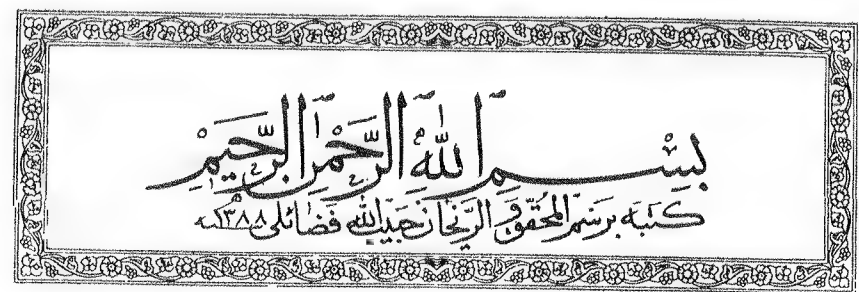 بِسْمِ اللهِ الرَّحْمٰنِ الرَّحِيمِ
كتبه برسم المحقق و الريحان حبيب الله فضائلى ١٣٨٨